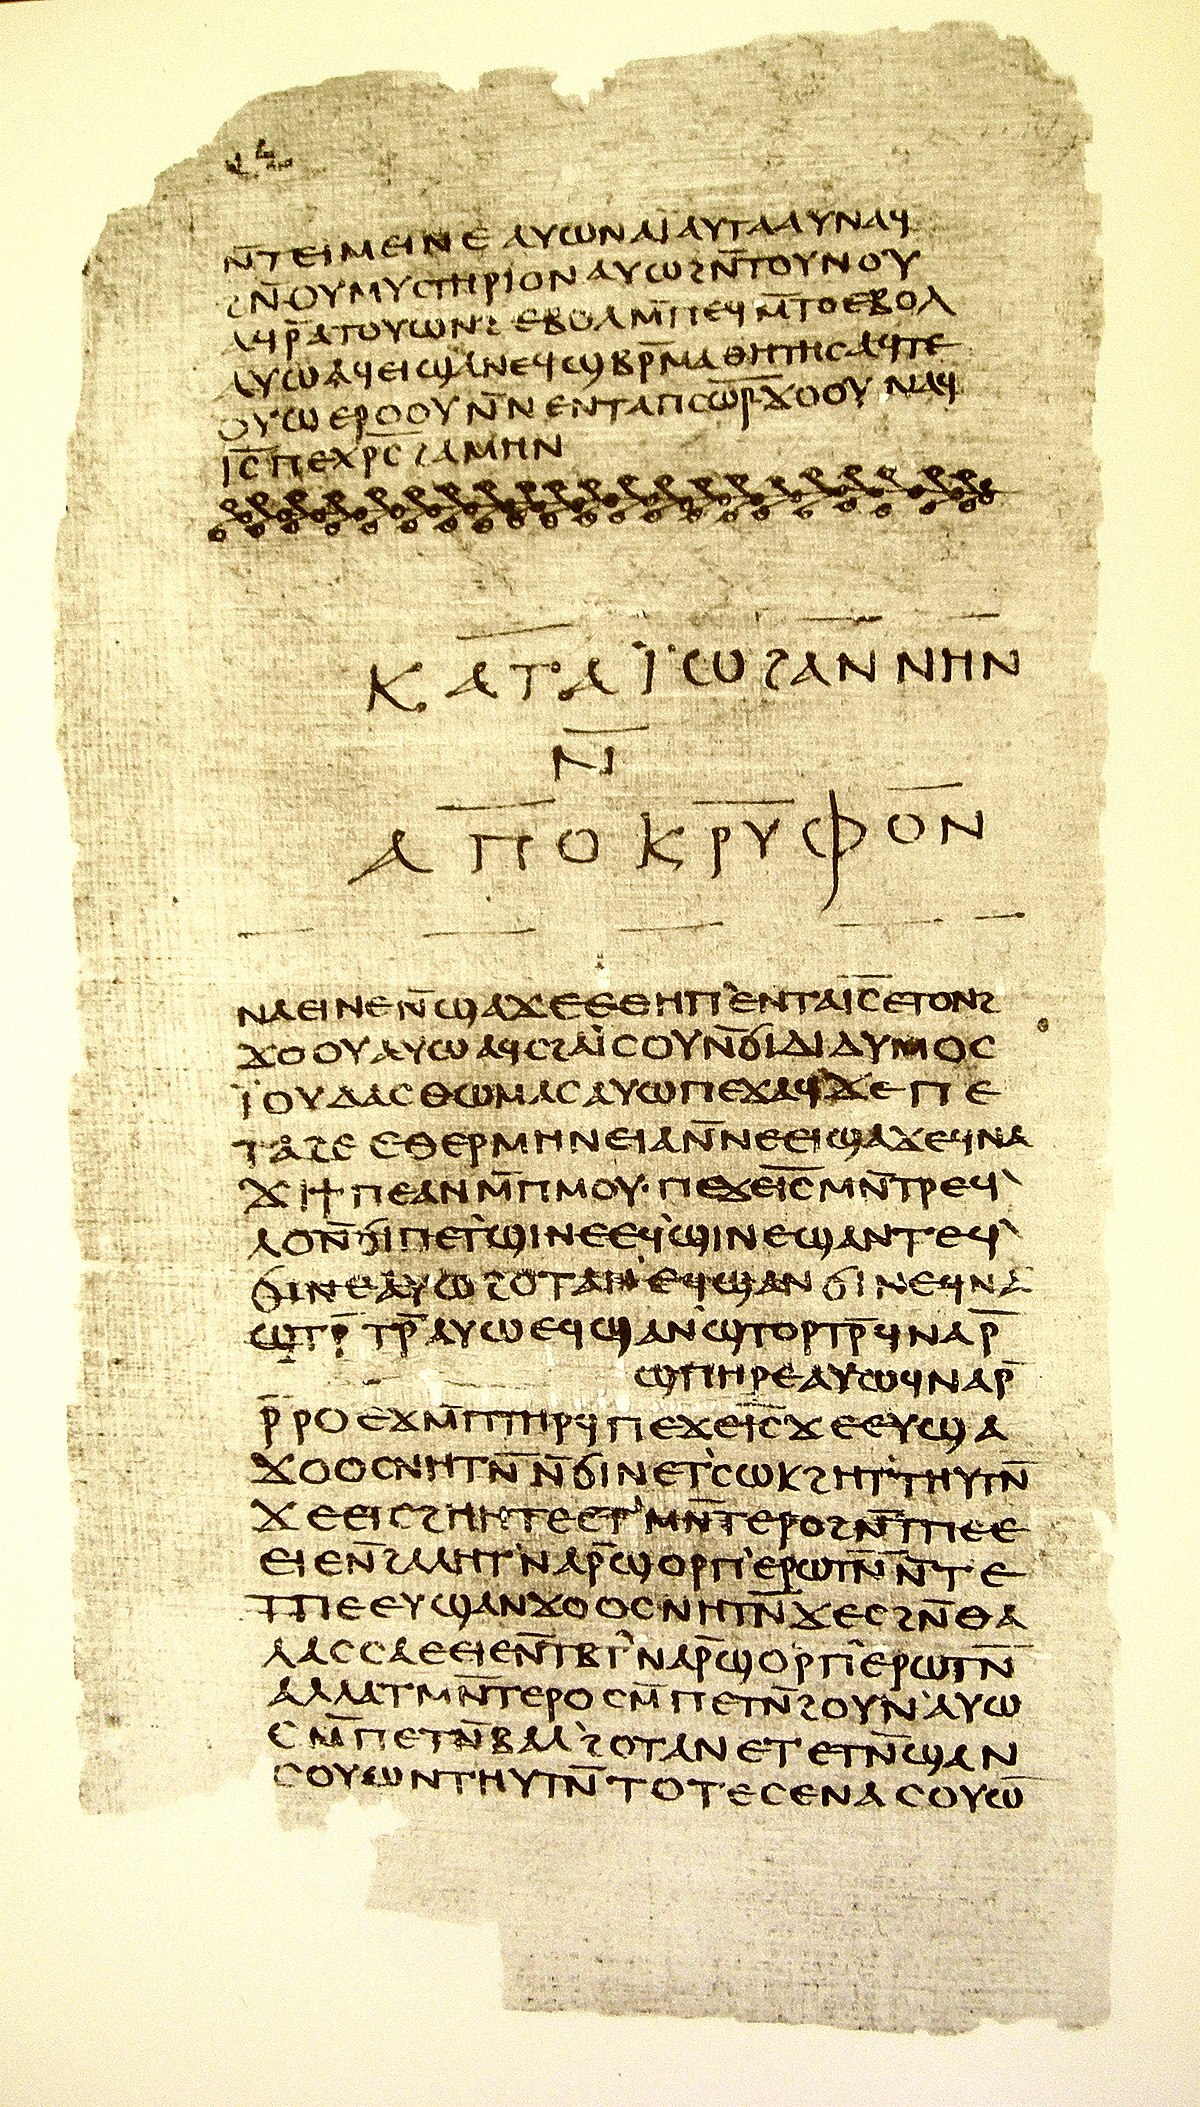 ⲛ̄ⲧⲉⲓⲙⲉⲓⲛⲉ ⲁⲩⲱ ⲛⲁⲓ̈ ⲁⲩⲧⲁⲁⲩ ⲛⲁϥ
ϩⲛ̄ ⲟⲩⲙⲩⲥⲧⲏⲣⲓⲟⲛ ⲁⲩⲱ ϩⲛ̄ ⲧⲟⲩⲛⲟⲩ
ⲁϥⲣ̄ⲁⲧⲟⲩⲱⲛϩ ⲉⲃⲟⲗ ⲙ̄ⲡⲉϥⲙ̄ⲧⲟ ⲉⲃⲟⲗ
ⲁⲩⲱ ⲁϥⲉⲓ ϣⲁ ⲛⲉϥϣⲃⲣ̄ⲙⲁⲑⲏⲧⲏⲥ ⲁϥⲧⲉ
ⲟⲩⲱ ⲉⲣⲟⲟⲩ ⲛ̄ⲛⲉⲛⲧⲁ ⲡⲥⲱ̄ⲣ̄ ϫⲟⲟⲩ ⲛⲁϥ
ⲓ̄ⲥ̄ ⲡⲉⲭⲣ̄ⲥ̄ ϩⲁⲙⲏⲛ
ⲕⲁⲧⲁ ⲓ̈ⲱϩⲁⲛⲛⲏⲛ
ⲛ̄
ⲁⲡⲟⲕⲣⲩⲫⲟⲛ
ⲛⲁⲉⲓ ⲛⲉ ⲛ̄ϣⲁϫⲉ ⲉⲑⲏⲡ ⲉⲛⲧⲁ ⲓ̄ⲥ̄ ⲉⲧⲟⲛϩ
ϫⲟⲟⲩ ⲁⲩⲱ ⲁϥⲥϩⲁⲓ̈ⲥⲟⲩ ⲛ̄ϭⲓ ⲇⲓⲇⲩⲙⲟⲥ
ⲓ̈ⲟⲩⲇⲁⲥ ⲑⲱⲙⲁⲥ ⲁⲩⲱ ⲡⲉϫⲁϥ ϫⲉ ⲡⲉ
ⲧⲁϩⲉ ⲉⲑⲉⲣⲙⲏⲛⲉⲓⲁ ⲛ̄ⲛⲉⲉⲓϣⲁϫⲉ ϥⲛⲁ
ϫⲓ ϯⲡⲉ ⲁⲛ ⲙ̄ⲡⲙⲟⲩ· ⲡⲉϫⲉ ⲓ̄ⲥ̄ ⲙⲛ̄ⲧⲣⲉϥ
ⲗⲟ ⲛ̄ϭⲓ ⲡⲉⲧϣⲓⲛⲉ ⲉϥϣⲓⲛⲉ ϣⲁⲛⲧⲉϥ
ϭⲓⲛⲉ ⲁⲩⲱ ϩⲟⲧⲁⲛ ⲉϥϣⲁⲛϭⲓⲛⲉ ϥⲛⲁ
ϣⲧⲣ̄ⲧⲣ̄ ⲁⲩⲱ ⲉϥϣⲁⲛϣⲧⲟⲣⲧⲣ̄ ϥⲛⲁⲣ̄
ϣⲡⲏⲣⲉ ⲁⲩⲱ ϥⲛⲁⲣ̄
ⲣ̄ⲣⲟ ⲉϫⲙ̄ ⲡⲧⲏⲣϥ ⲡⲉϫⲉ ⲓ̄ⲥ̄ ϫⲉ ⲉⲩϣⲁ
ϫⲟⲟⲥ ⲛⲏⲧⲛ̄ ⲛ̄ϭⲓ ⲛⲉⲧⲥⲱⲕ ϩⲏⲧ ⲧⲏⲩⲧⲛ̄
ϫⲉ ⲉⲓⲥϩⲏⲏⲧⲉ ⲉⲧⲙⲛ̄ⲧⲉⲣⲟ ϩⲛ̄ ⲧⲡⲉ ⲉ
ⲉⲓⲉ ⲛ̄ϩⲁⲗⲏⲧ ⲛⲁⲣ̄ ϣⲟⲣⲡ ⲉⲣⲱⲧⲛ̄ ⲛ̄ⲧⲉ
ⲧⲡⲉ ⲉⲩϣⲁⲛϫⲟⲟⲥ ⲛⲏⲧⲛ̄ ϫⲉ ⲥϩⲛ̄ ⲑⲁ
ⲗⲁⲥⲥⲁ ⲉⲉⲓⲉ ⲛ̄ⲧⲃⲧ ⲛⲁⲣ̄ ϣⲟⲣⲡ ⲉⲣⲱⲧⲛ̄
ⲁⲗⲗⲁ ⲧⲙⲛ̄ⲧⲉⲣⲟ ⲥⲙ̄ⲡⲉⲧⲛ̄ϩⲟⲩⲛ ⲁⲩⲱ
ⲥⲙ̄ⲡⲉⲧⲛ̄ⲃⲁⲗ ϩⲟⲧⲁⲛ ⲉⲧⲉⲧⲛ̄ϣⲁⲛ
ⲥⲟⲩⲱⲛ ⲧⲏⲩⲧⲛ̄ ⲧⲟⲧⲉ ⲥⲉⲛⲁⲥⲟⲩⲱ̄